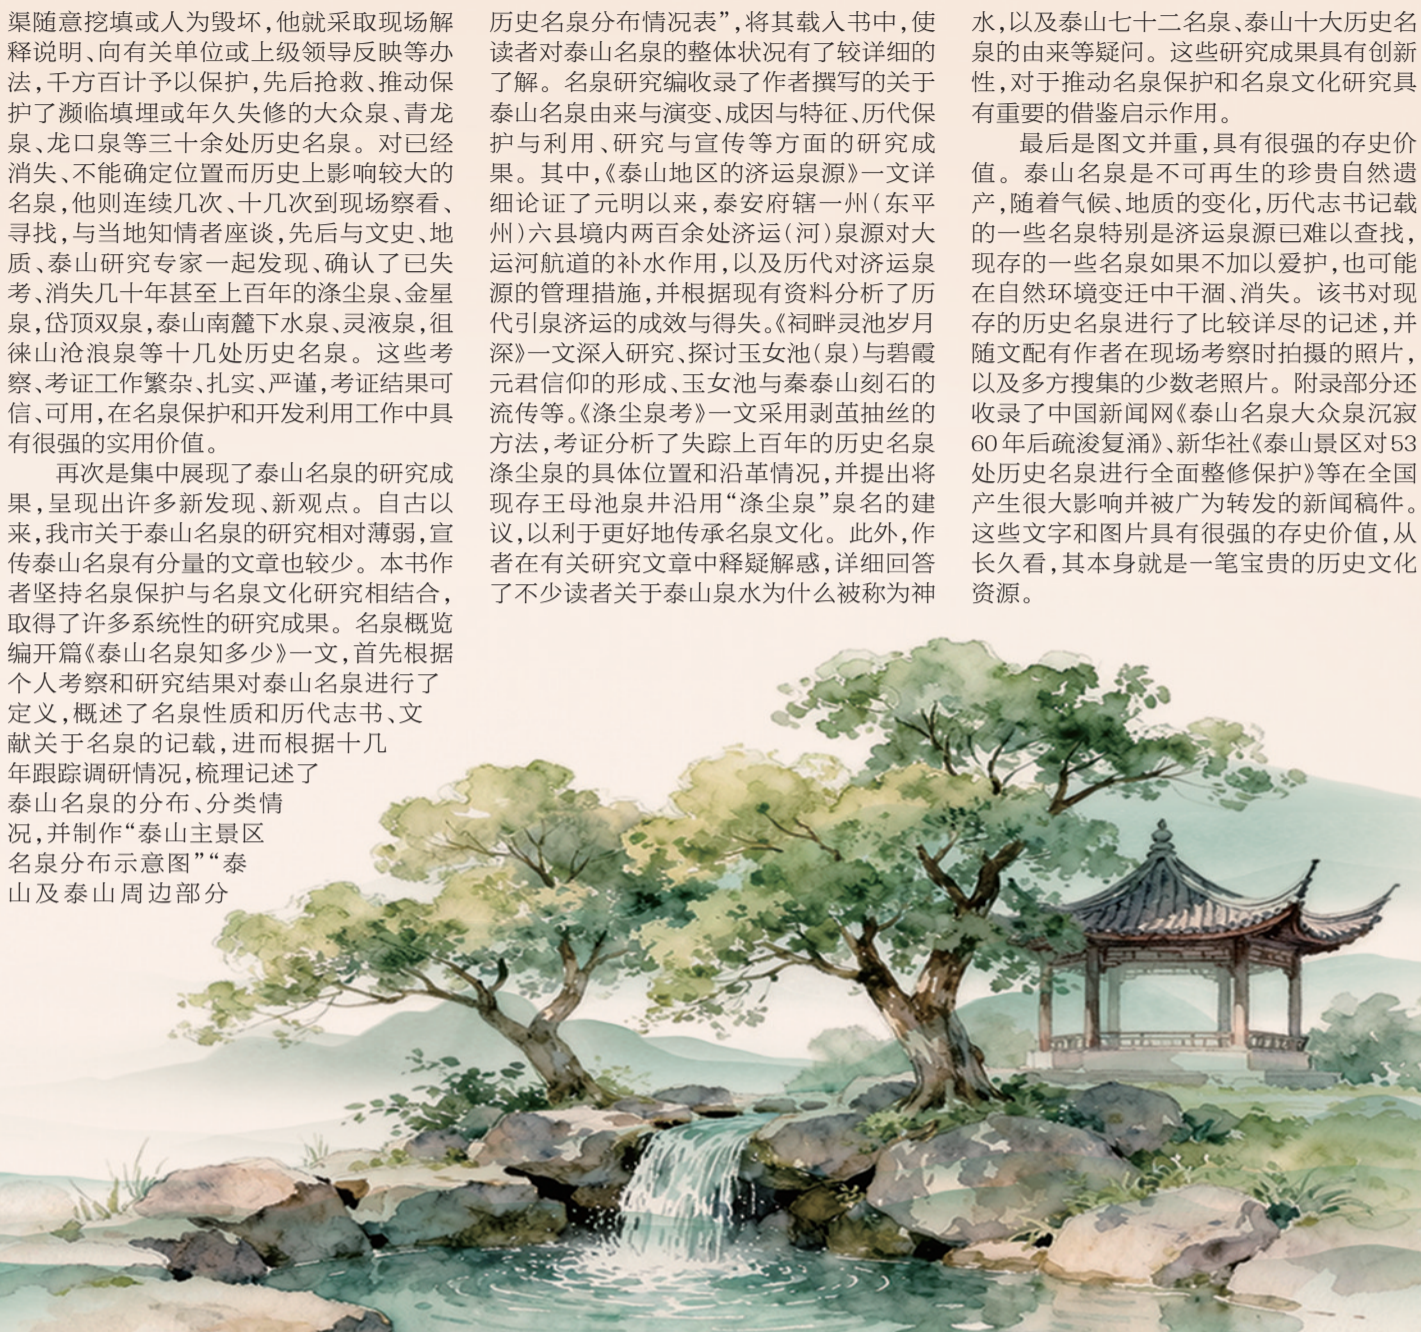 渠随意挖填或人为毁坏，他就采取现场解
释说明、向有关单位或上级领导反映等办
法，千方百计予以保护，先后抢救、推动保
护了濒临填埋或年久失修的大众泉、青龙
泉、龙口泉等三十余处历史名泉。对已经
消失、不能确定位置而历史上影响较大的
名泉，他则连续几次、十几次到现场察看、
寻找，与当地知情者座谈，先后与文史、地
质、泰山研究专家一起发现、确认了已失
考、消失几十年甚至上百年的涤尘泉、金星
泉，岱顶双泉，泰山南麓下水泉、灵液泉，徂
徕山沧浪泉等十几处历史名泉。这些考
察、考证工作繁杂、扎实、严谨，考证结果可
信、可用，在名泉保护和开发利用工作中具
有很强的实用价值。
再次是集中展现了泰山名泉的研究成
果，呈现出许多新发现、新观点。自古以
来，我市关于泰山名泉的研究相对薄弱，宣
传泰山名泉有分量的文章也较少。本书作
者坚持名泉保护与名泉文化研究相结合，
取得了许多系统性的研究成果。名泉概览
编开篇《泰山名泉知多少》一文，首先根据
个人考察和研究结果对泰山名泉进行了
定义，概述了名泉性质和历代志书、文
献关于名泉的记载，进而根据十几
年跟踪调研情况，梳理记述了
泰山名泉的分布、分类情
况，并制作“泰山主景区
名泉分布示意图”“泰
山及泰山周边部分
历史名泉分布情况表”，将其载入书中，使
读者对泰山名泉的整体状况有了较详细的
了解。名泉研究编收录了作者撰写的关于
泰山名泉由来与演变、成因与特征、历代保
护与利用、研究与宣传等方面的研究成
果。其中，《泰山地区的济运泉源》一文详
细论证了元明以来，泰安府辖一州（东平
州）六县境内两百余处济运（河）泉源对大
运河航道的补水作用，以及历代对济运泉
源的管理措施，并根据现有资料分析了历
代引泉济运的成效与得失。《祠畔灵池岁月
深》一文深入研究、探讨玉女池（泉）与碧霞
元君信仰的形成、玉女池与秦泰山刻石的
流传等。《涤尘泉考》一文采用剥茧抽丝的
方法，考证分析了失踪上百年的历史名泉
涤尘泉的具体位置和沿革情况，并提出将
现存王母池泉井沿用“涤尘泉”泉名的建
议，以利于更好地传承名泉文化。此外，作
者在有关研究文章中释疑解惑，详细回答
了不少读者关于泰山泉水为什么被称为神
水，以及泰山七十二名泉、泰山十大历史名
泉的由来等疑问。这些研究成果具有创新
性，对于推动名泉保护和名泉文化研究具
有重要的借鉴启示作用。
最后是图文并重，具有很强的存史价
值。泰山名泉是不可再生的珍贵自然遗
产，随着气候、地质的变化，历代志书记载
的一些名泉特别是济运泉源已难以查找，
现存的一些名泉如果不加以爱护，也可能
在自然环境变迁中干涸、消失。该书对现
存的历史名泉进行了比较详尽的记述，并
随文配有作者在现场考察时拍摄的照片，
以及多方搜集的少数老照片。附录部分还
收录了中国新闻网《泰山名泉大众泉沉寂
60年后疏浚复涌》、新华社《泰山景区对53
处历史名泉进行全面整修保护》等在全国
产生很大影响并被广为转发的新闻稿件。
这些文字和图片具有很强的存史价值，从
长久看，其本身就是一笔宝贵的历史文化
资源。